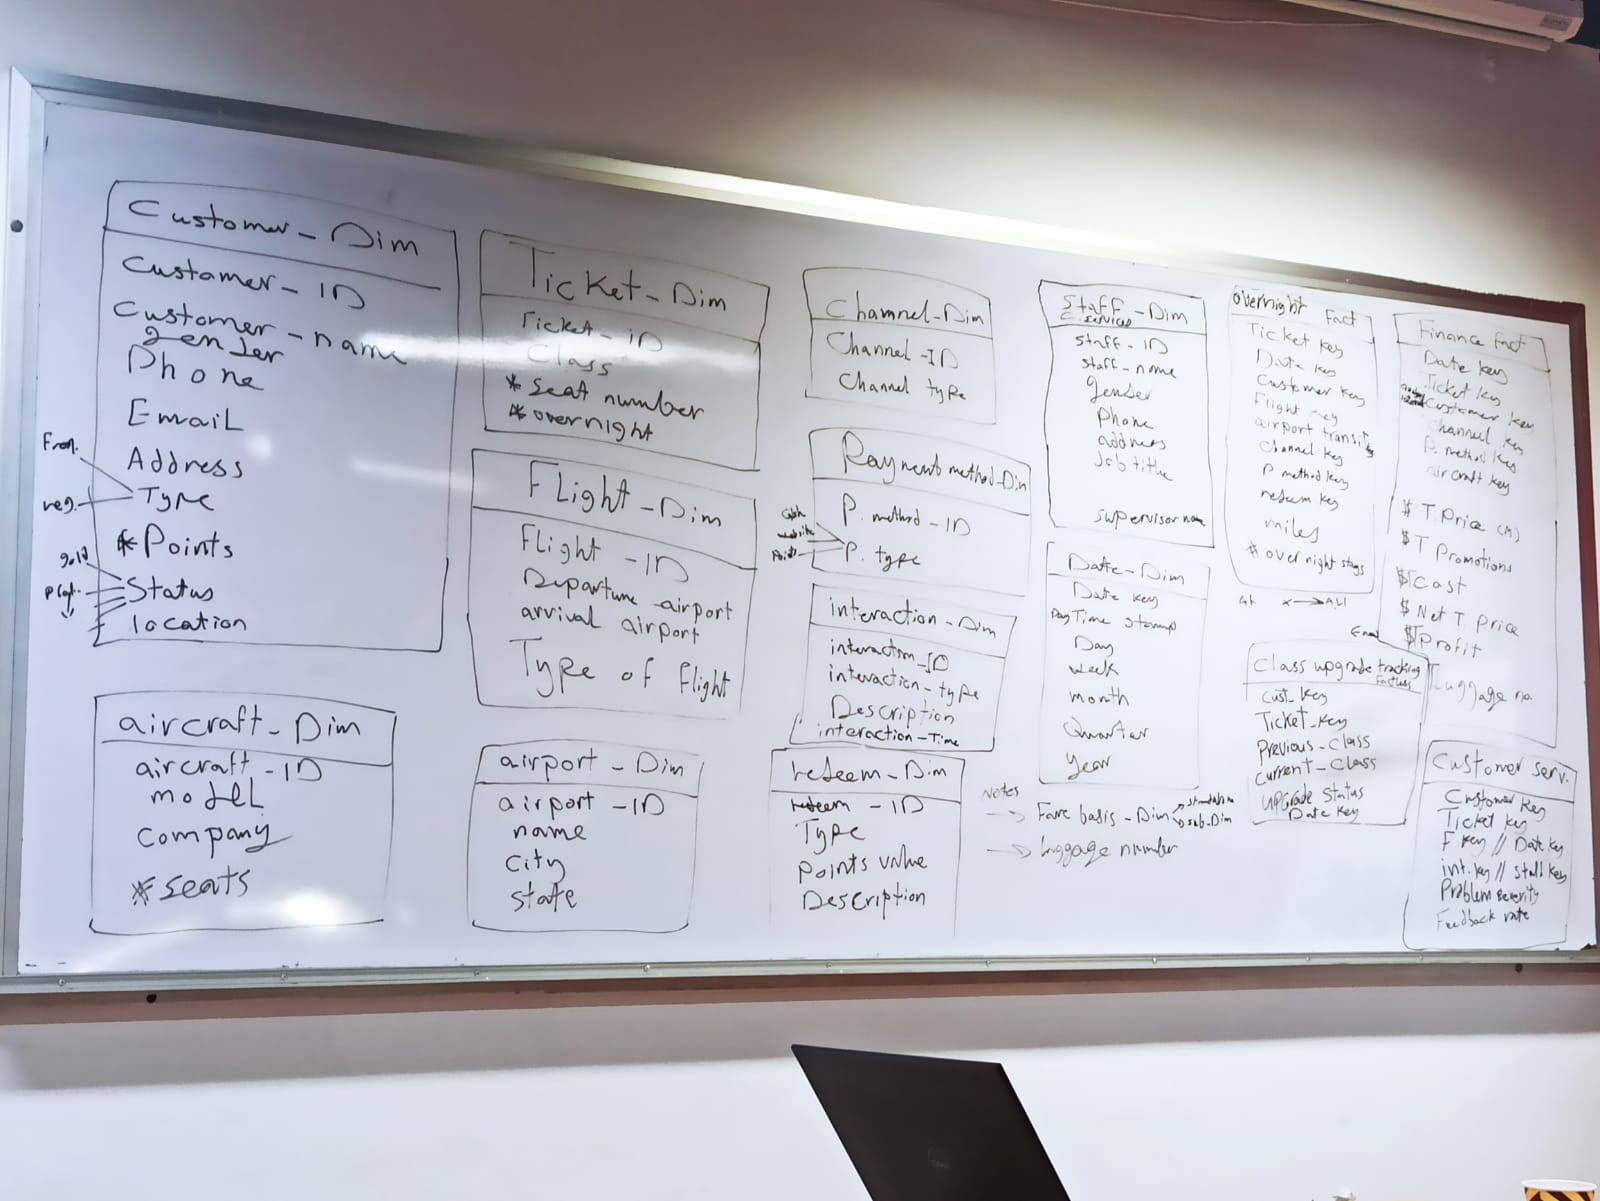 Customer_Dim
Customer_ID
Customer_name
gender
Phone
Email
Address
Type
*Points
Status
location
Fren.
reg.
gold
plat.
aircraft_Dim
aircraft_ID
model
company
*seats
Ticket_Dim
Ticket_ID
Class
*seat number
*overnight
Flight_Dim
Flight_ID
Departure_airport
arrival airport
Type of flight
airport_Dim
airport_ID
name
city
state
Channel_Dim
Channel_ID
Channel type
Payment method_Dim
P. method_ID
P. type
Cash
website
Points
interaction_Dim
interaction_ID
interaction_type
Description
interaction_Time
redeem_Dim
redeem_ID
Type
Points value
Description
Staff_Dim
C services
staff_ID
staff_name
gender
Phone
address
Job title
supervisor name
Date_Dim
Date key
Time stamp
Day
week
month
Quarter
year
Notes
→ Fare basis_Dim
sub_Dim
→ luggage number
overnight Fact
Ticket key
Date key
Customer key
Flight key
airport transit key
Channel key
P method key
redeem key
miles
*over night stays
x → ALL
Class upgrade tracking
Factless
Cust_key
Ticket_key
Previous_Class
Current_Class
upgrade status
Date key
Finance fact
Date key
Ticket key
Customer key
channel key
P. method key
aircraft key
$ T.Price (M)
$ T Promotions
$ Cost
$ Net T price
$ Profit
Luggage no.
Customer serv.
Customer key
Ticket key
F key // Date key
int. key // staff key
Problem severity
Feedback rate